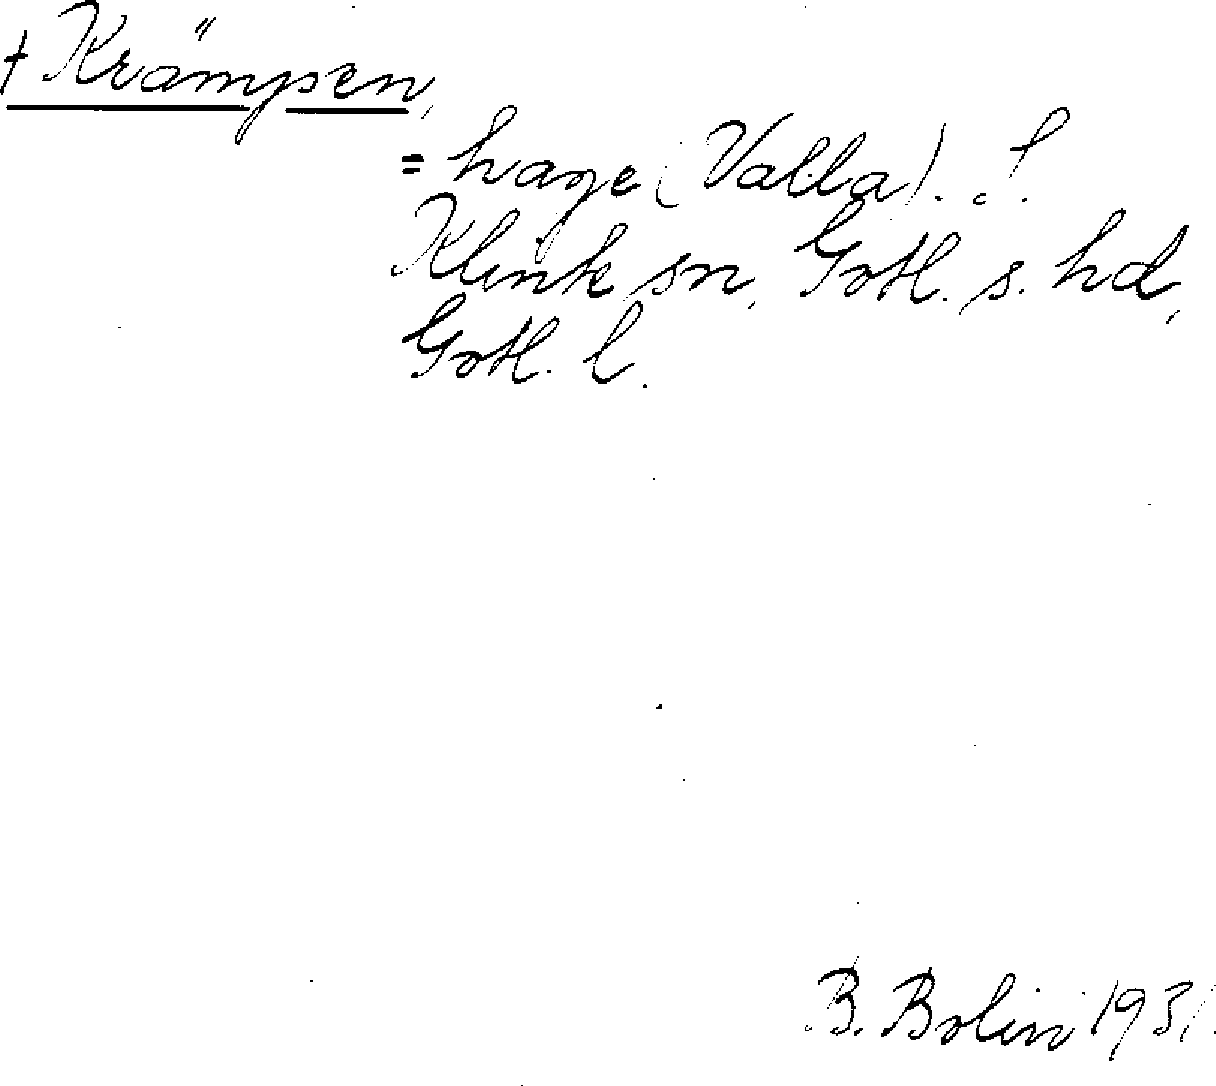 † Krämpen,
= hage (Valla).
Klinte sn, Gotl. s. hd,
Gotl. l.
B. Bolin 1931.